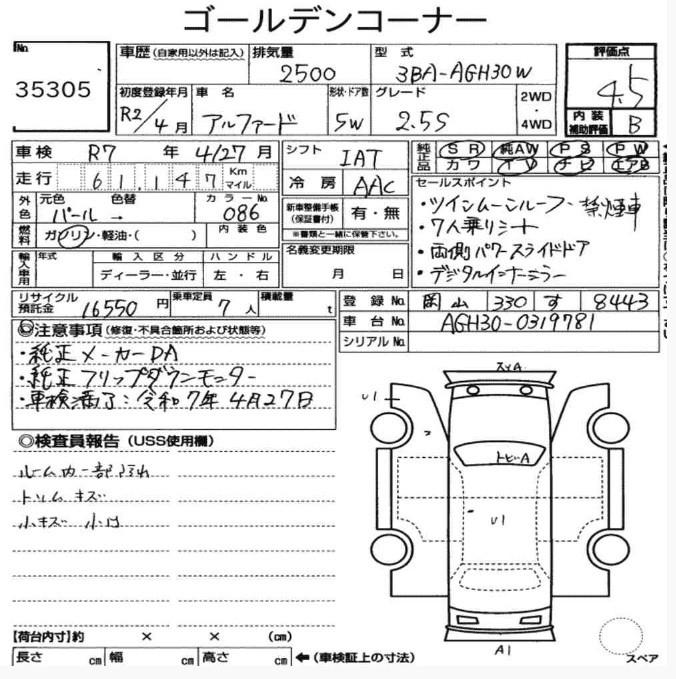 ゴールデンコーナー
No. 35305
車歴 (自家用以外は記入)
排気量 2500
型式 3BA-AGH30W
評価点 4.5
初度登録年月 R2/4月
車名 アルファード
形状・ドア数 5W
グレード 2.5S
2WD・4WD
内装補助評価 B
車検 R7年 4/27月
シフト IAT
純正品 SR 純AW PS PW
カワ TV ナビ エアB
走行 61,147 Km マイル
冷房 AAC
セールスポイント
・ツインムーンルーフ・禁煙車
・7人乗りシート
・両側パワースライドドア
・デジタルインナーミラー
外色 元色 パール 色替 → カラーNo. 086
新車整備手帳(保証書付) 有・無
※書類と一緒に保管下さい。
燃料 ガソリン・軽油・( ) 内装色
名義変更期限 月 日
輸入車用 年式 輸入区分 ディーラー・並行 ハンドル 左・右
リサイクル預託金 16550円 乗車定員 7人 積載量 t
登録No. 岡山 330 す 8443
車台No. AGH30-0319781
シリアルNo.
◎注意事項 (修復・不具合箇所および状態等)
・純正メーカーDA
・純正フリップダウンモニター
・車検満了:令和7年4月27日
◎検査員報告 (USS使用欄)
ルーム内一部汚れ
トリムキズ
小キズ 小凹
スレA
U1
トビA
U1
A1
スペア
【荷台内寸】約 × × (cm)
長さ cm 幅 cm 高さ cm ←(車検証上の寸法)